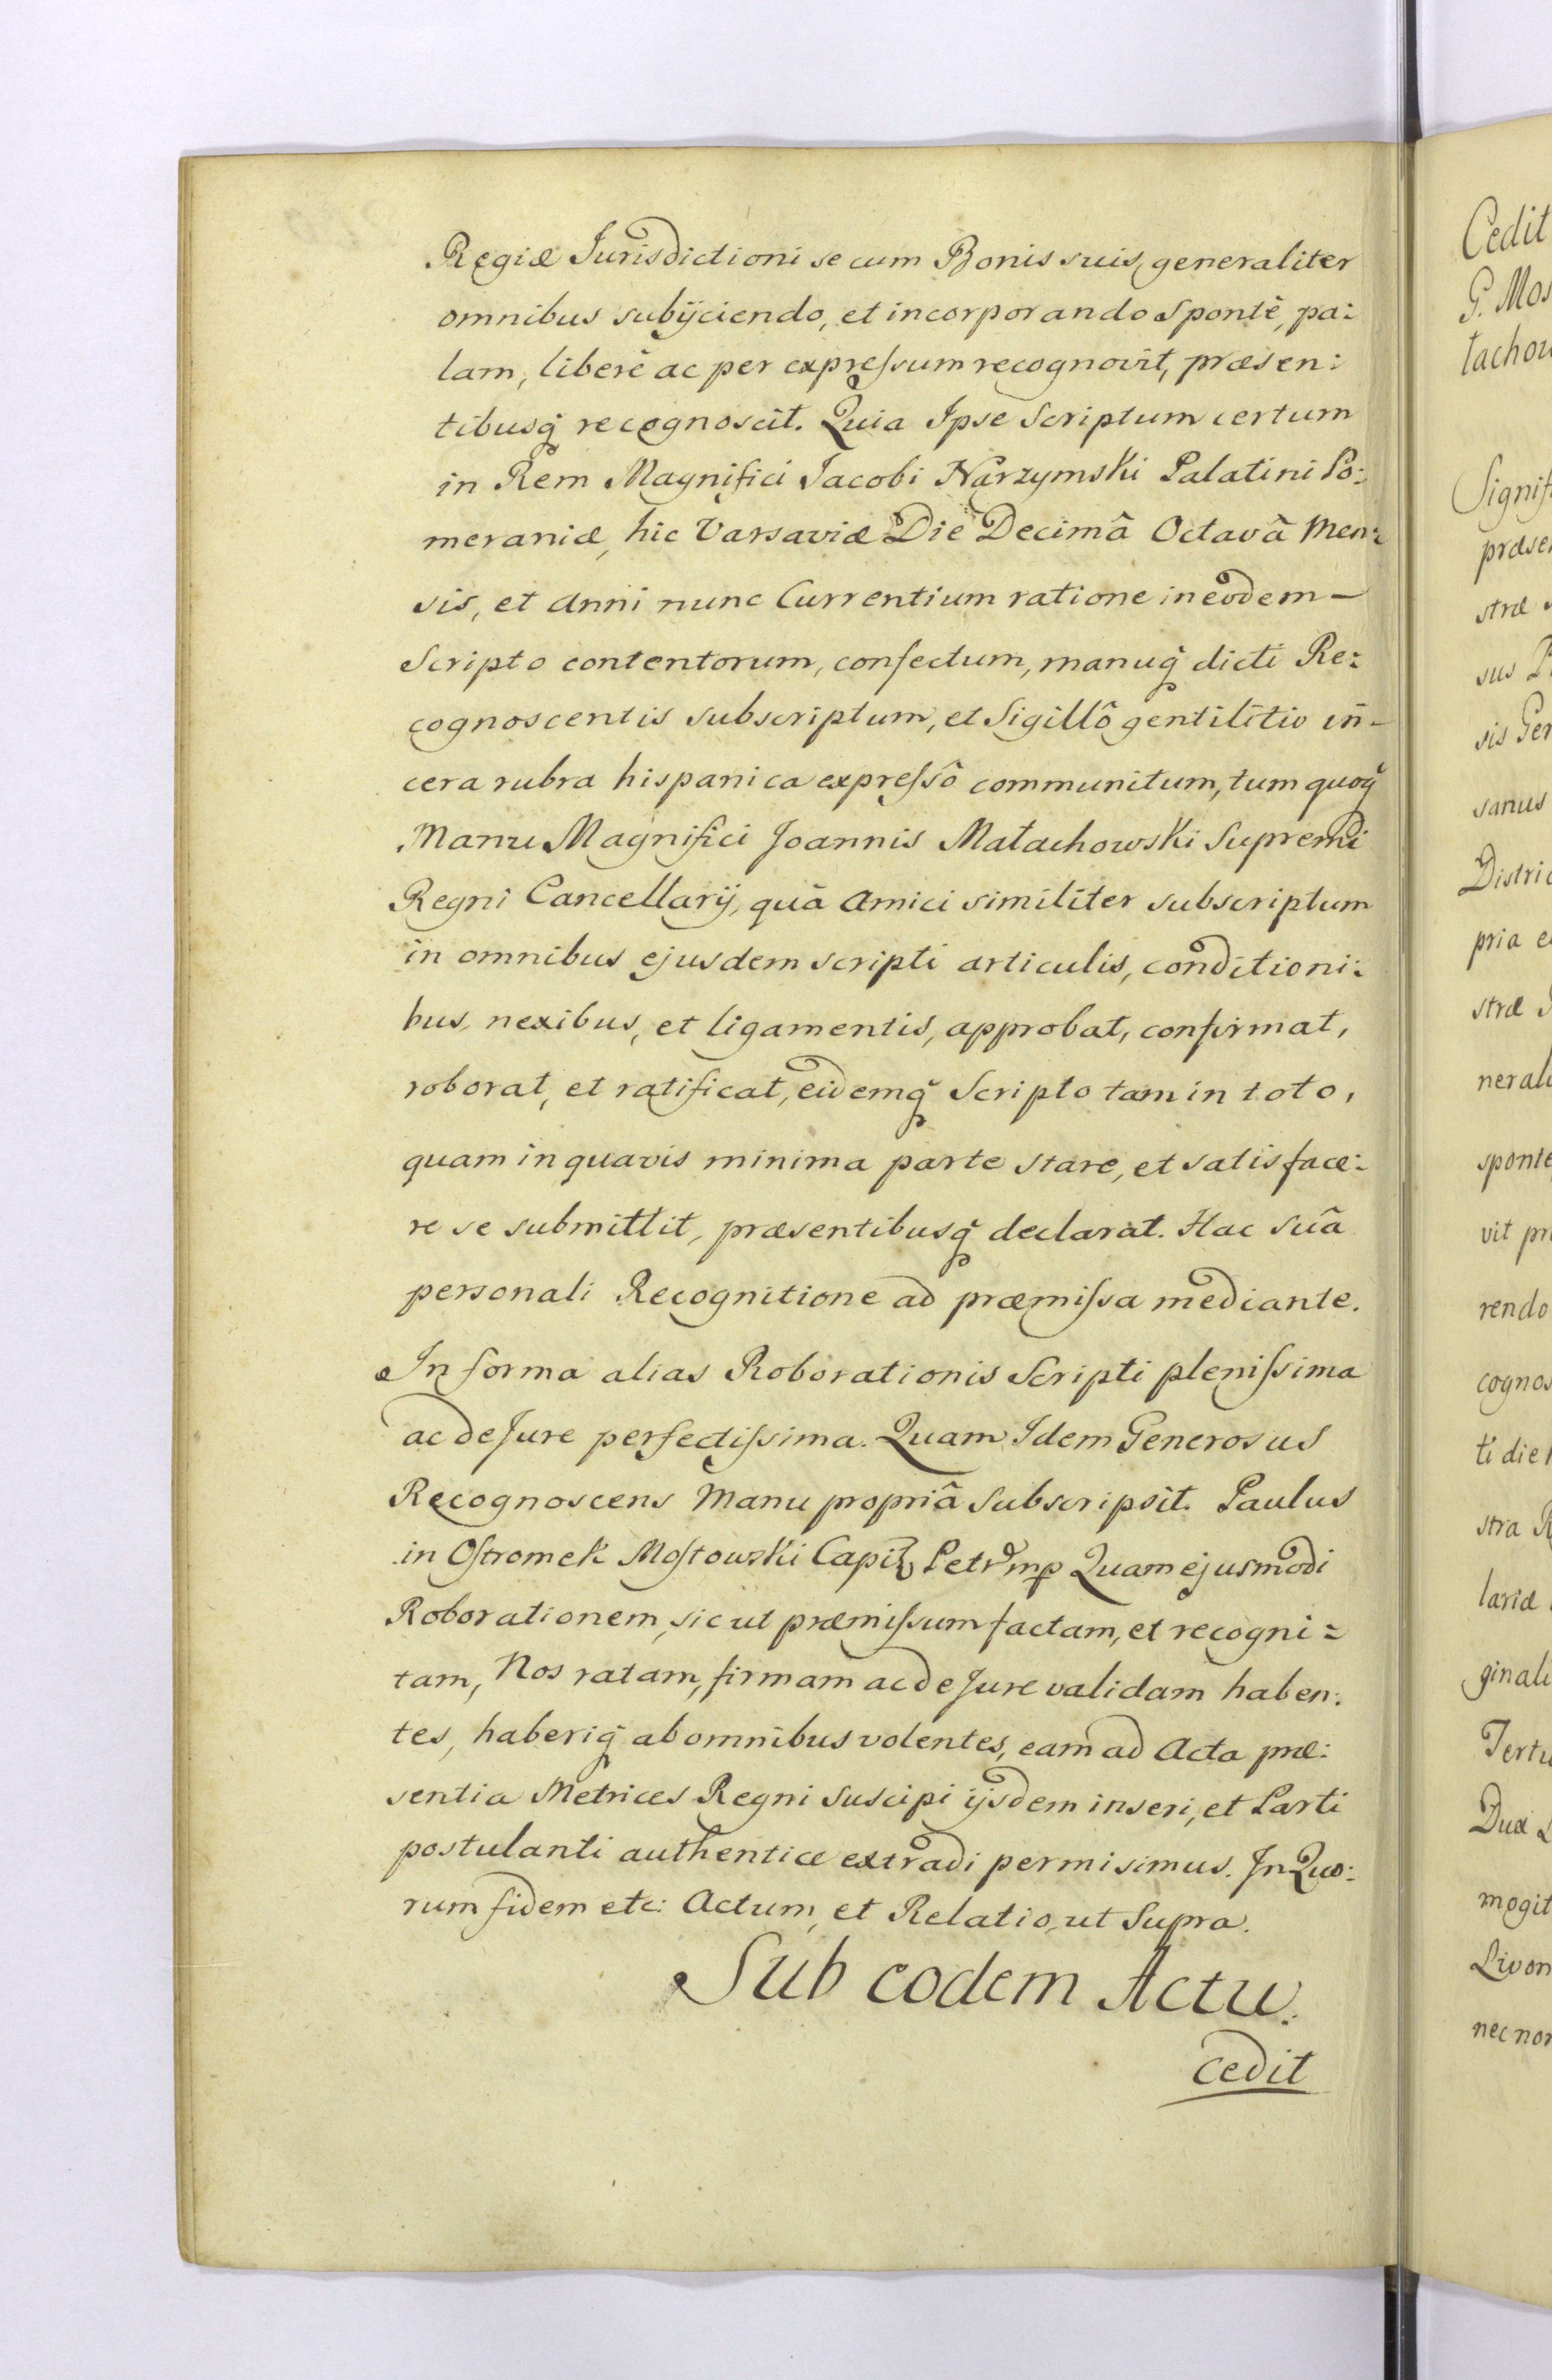 Regiæ Jurisdictioni se cum Bonis suis, generaliter
omnibus subijciendo, et incorporando Spontè, pa:
lam, liberè ac per expreſsum recognovit, præsen:
tibusq́ recognoscit. Quia Ipse Scriptum certum
in Rem Magnifici Jacobi Narzymski Palatini Po:
meraniæ, hic Varsaviæ Die Decimâ Octavâ Men:
sis, et Anni nunc Currentium ratione in eodem –
Scripto contentorum, confectum, manuq́ dicti Re:
cognoscentis subscriptum, et Sigillô gentilitio in –
cera rubra hispanica expreſsô communitum, tum quoq́
Manu Magnifici Joannis Małachowski Supremi
Regni Cancellarij, quà Amici similiter subscriptum
in omnibus ejusdem scripti articulis, conditioni:
bus, nexibus, et ligamentis, approbat, confirmat,
roborat, et ratificat, eidemq́ Scripto tam in toto,
quam in quavis minima parte stare, et satisface:
re se submittit, præsentibusq́ declarat. Hac suâ
personali Recognitione ad præmiſsa mediante.
In forma alias Roborationis Scripti pleniſsima
ac de Jure perfectiſsima. Quam Idem Generosus
Recognoscens Manu propriâ Subscripsit. Paulus
in Oſtromek Moſtowski Capit Petr mp Quam ejusmodi
Roborationem, sic ut præmiſsum factam, et recogni:
tam, Nos ratam, firmam ac de Jure validam haben:
tes, haberiq́ ab omnibus volentes, eam ad Acta præ:
sentia Metrices Regni Suscipi ijsdem inseri, et Parti
postulanti authentice extradi permisimus. In Quo:
rum fidem etc: Actum, et Relatio, ut Supra.
Sub eodem Actu.
cedit
Cedit
G. Mos
łachow
Signif
præse
stræ
sus P
sis Gen
sanus
Distric
pria e
stræ
nerali
sponte
vit pr
rendo
cognos
ti die
stra R
lariæ
ginali
Tertu
Dux L
mogit
Livon
necnon